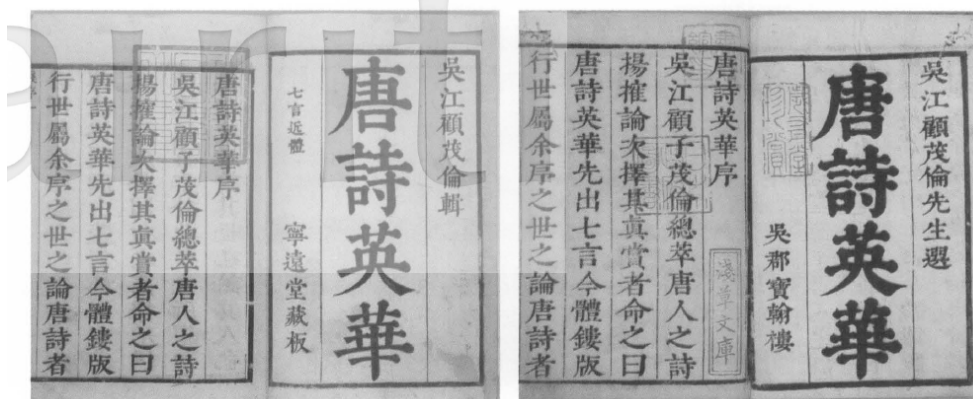 吳江顧茂倫輯
唐詩英華
七言近體
寧遠堂藏板
唐詩英華序
吳江顧子茂倫總萃唐人之詩
揚搉論次擇其眞賞者命之曰
唐詩英華先出七言今體鏤版
行世屬余序之世之論唐詩者
吳江顧茂倫先生選
唐詩英華
吳郡寶翰樓
唐詩英華序
淺草文庫
吳江顧子茂倫總萃唐人之詩
揚搉論次擇其眞賞者命之曰
唐詩英華先出七言今體鏤版
行世屬余序之世之論唐詩者